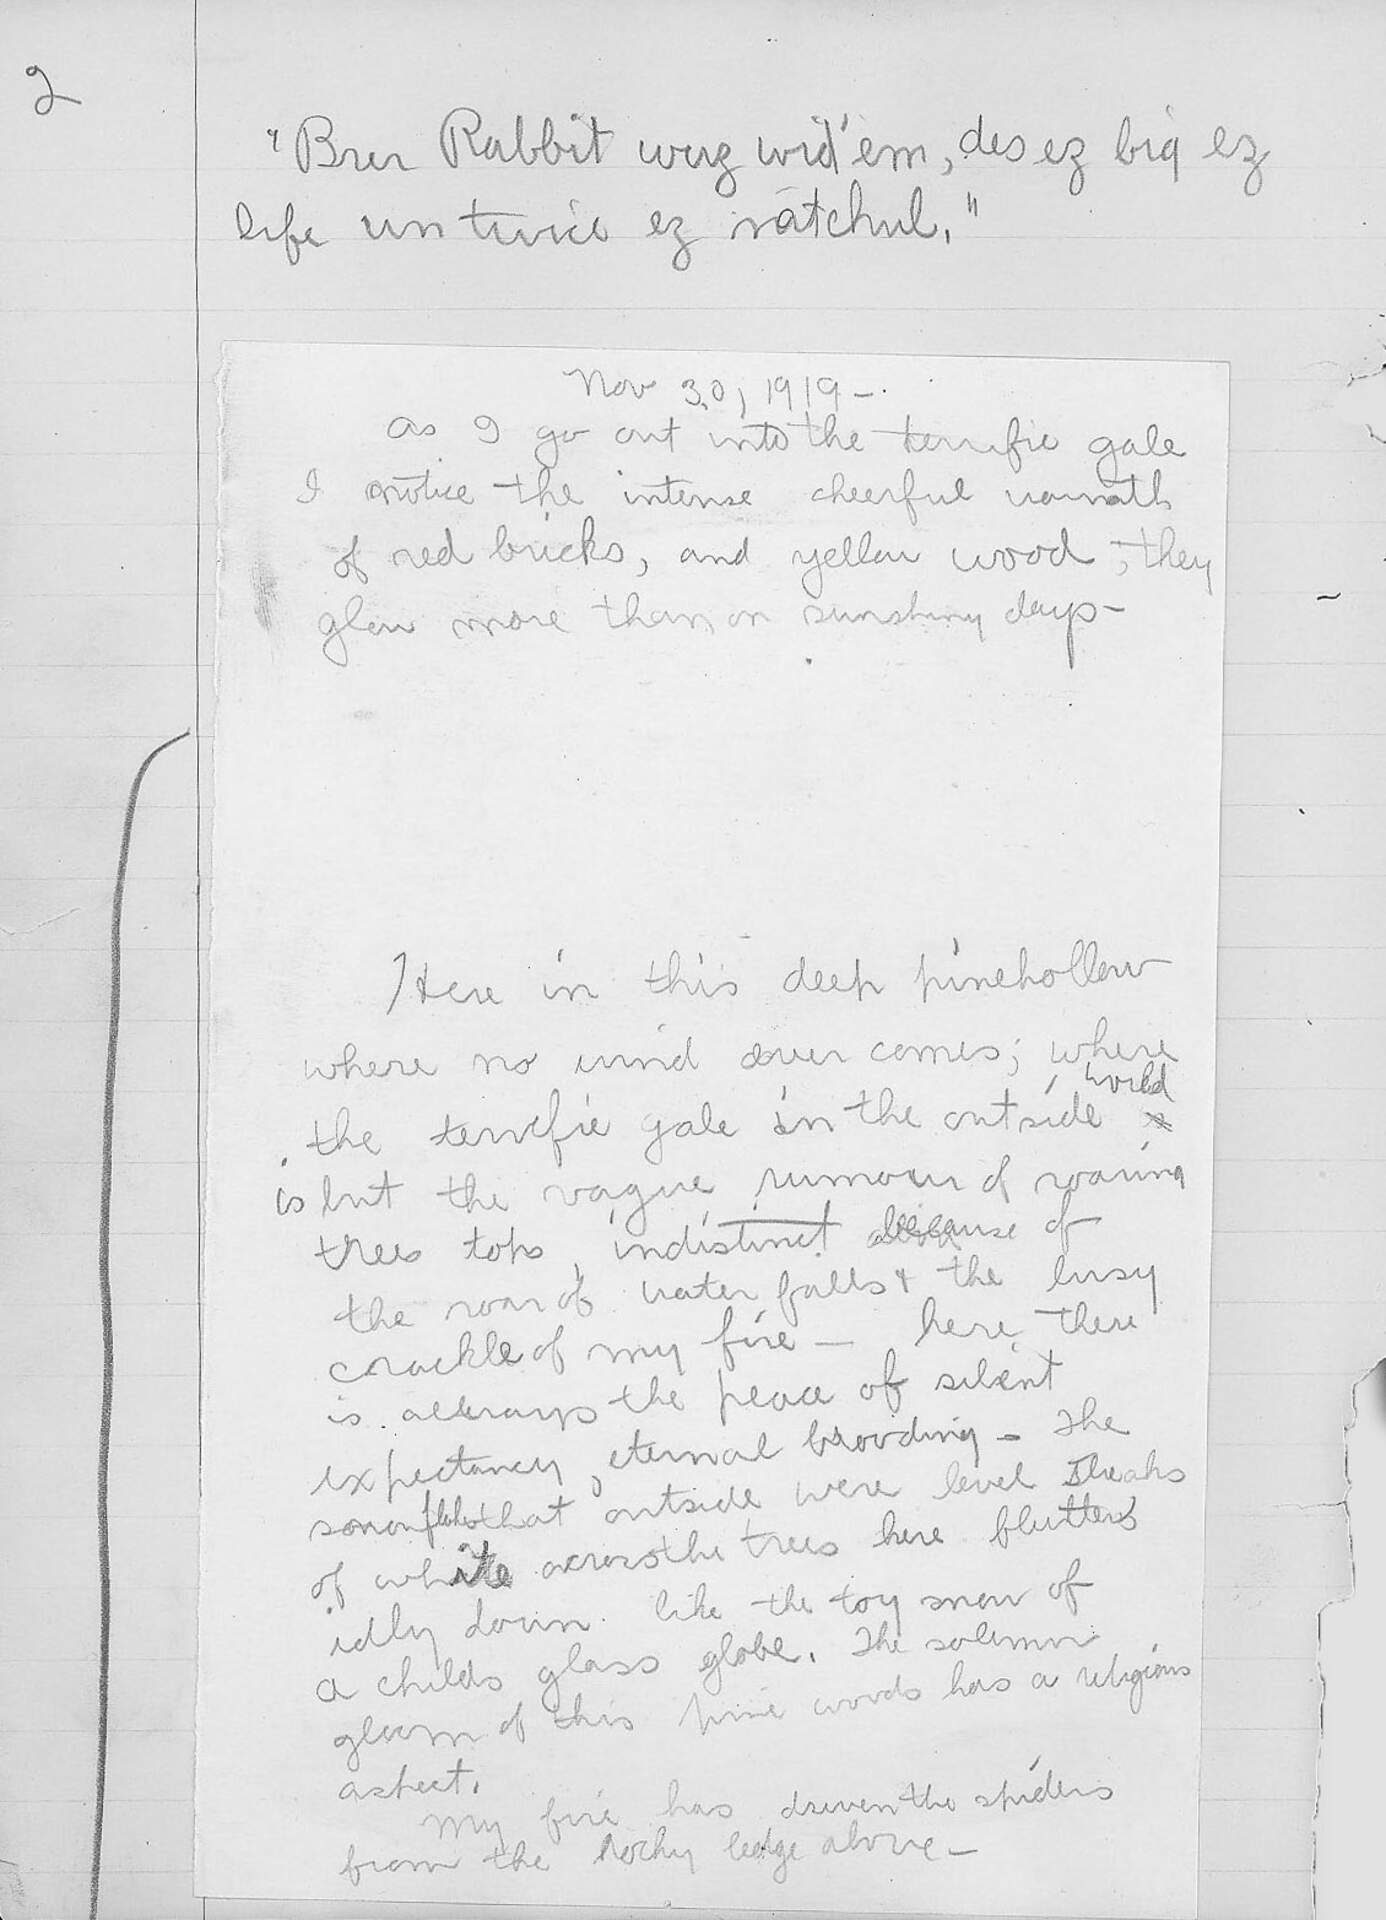 2
"Brer Rabbit wuz wid 'em, des ez big ez
life un twice ez natchul."
Nov 30, 1919 -
As I go out into the terrific gale
I notice the intense cheerful warmth
of red bricks, and yellow wood; they
glow more than on sunshiny days -
Here in this deep pinehollow
where no wind ever comes; where
the terrific gale in the outside world
is but the vague rumour of roaring
trees tops, indistinct because of
the roar of water falls & the busy
crackle of my fire — here there
is always the peace of silent
expectancy, eternal brooding - The
snowflakes that outside were level streaks
of white across the trees here flutters
idly down like the toy snow of
a childs glass globe. The solemn
gloom of this pine woods has a religious
aspect.
My fire has driven the spiders
from the rocky ledge above -